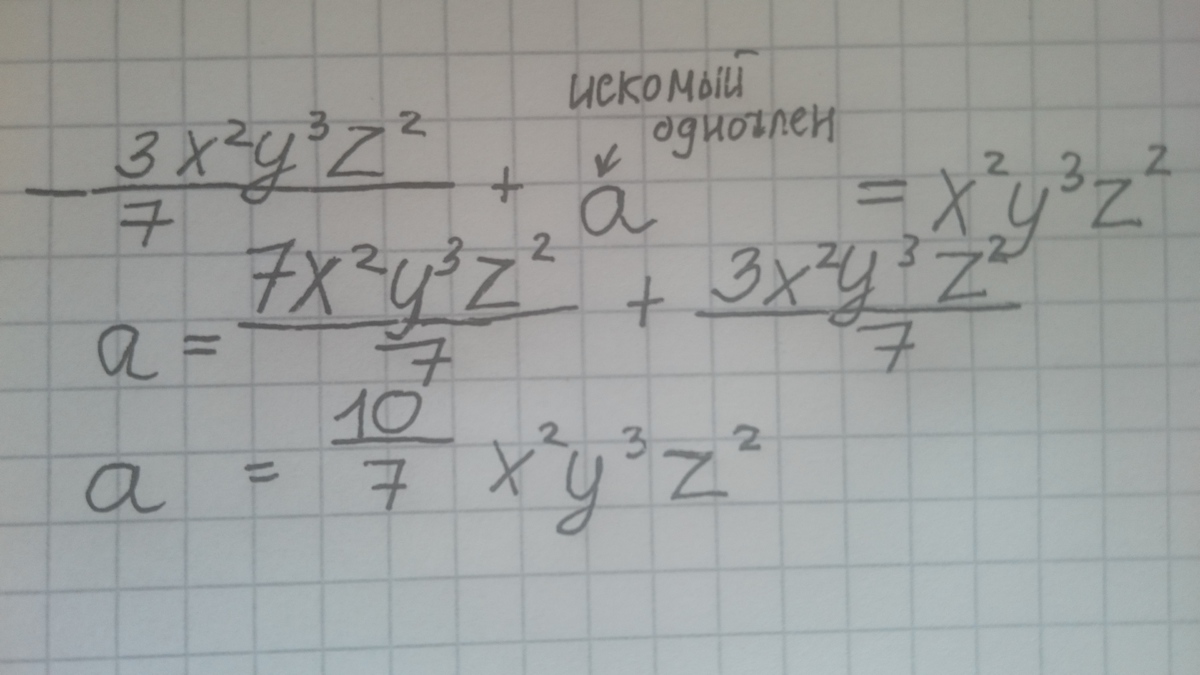 искомый
одночлен
− 3x²y³z²/7 + a = x²y³z²
a = 7x²y³z²/7 + 3x²y³z²/7
a = 10/7 x²y³z²